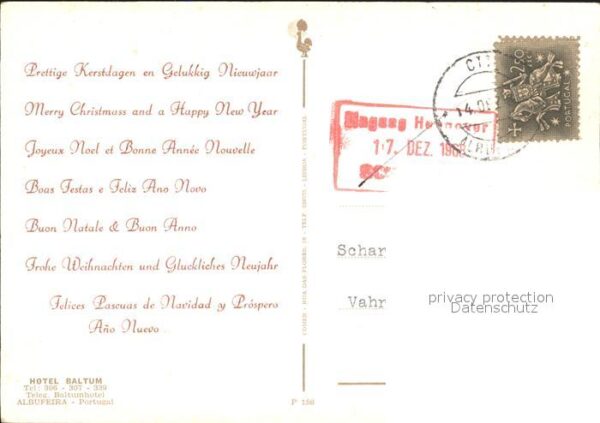 Prettige Kerstdagen en Gelukkig Nieuwjaar
Merry Christmass and a Happy New Year
Joyeux Noel et Bonne Année Nouvelle
Boas Festas e Feliz Ano Novo
Buon Natale & Buon Anno
Frohe Weihnachten und Gluckliches Neujahr
Felices Pascuas de Navidad y Próspero
Año Nuevo
HOTEL BALTUM
Tel: 306 - 307 - 339
Teleg. Baltumhotel
ALBUFEIRA - Portugal
P 156
RUA DAS FLORES
LISBOA - PORTUGAL
2$50
PORTUGAL
17. DEZ.
Schar
Vahr
privacy protection
Datenschutz